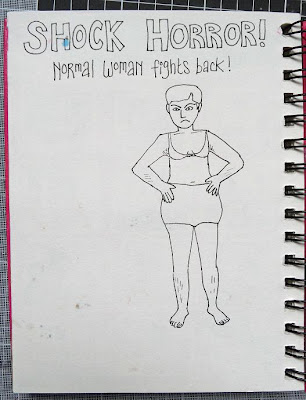 SHOCK HORROR!
Normal woman fights back!